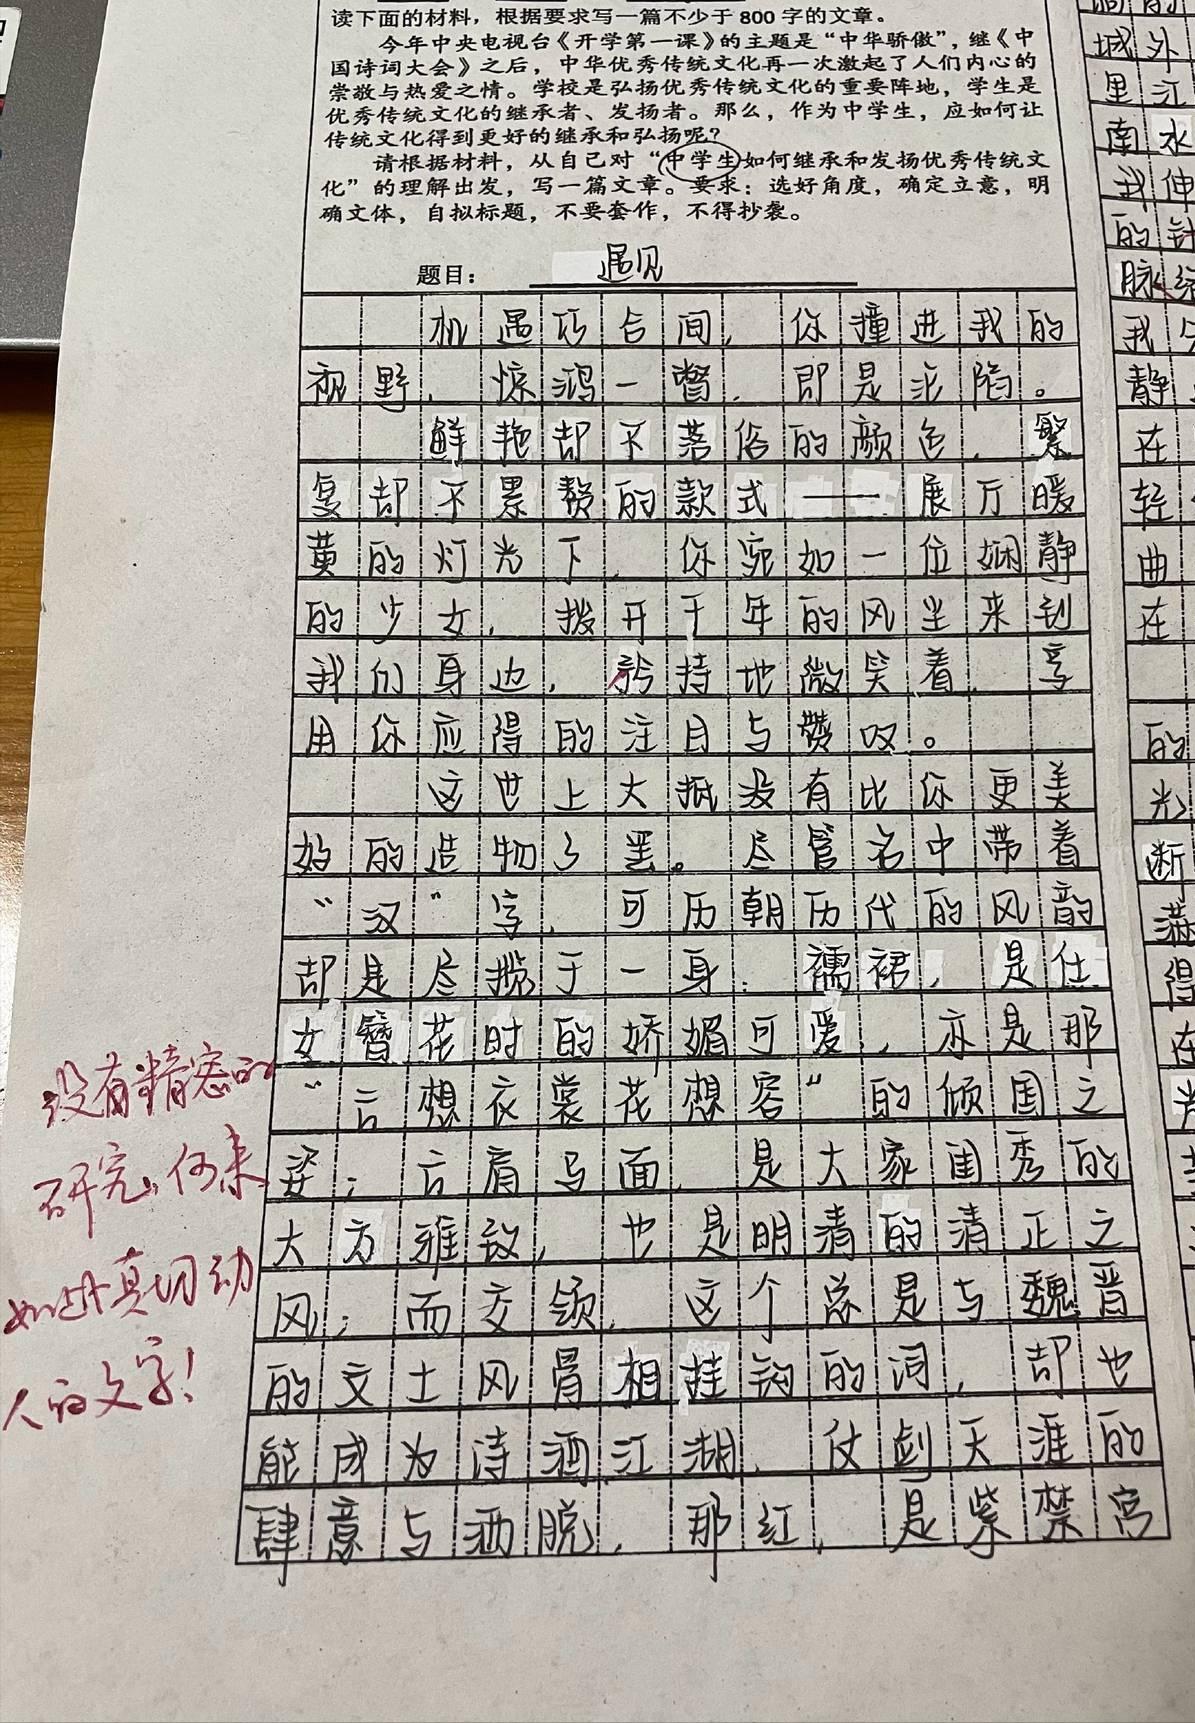 读下面的材料，根据要求写一篇不少于800字的文章。
今年中央电视台《开学第一课》的主题是“中华骄傲”，继《中
国诗词大会》之后，中华优秀传统文化再一次激起了人们内心的
崇敬与热爱之情。学校是弘扬优秀传统文化的重要阵地，学生是
优秀传统文化的继承者、发扬者。那么，作为中学生，应如何让
传统文化得到更好的继承和弘扬呢？
请根据材料，从自己对“中学生如何继承和发扬优秀传统文
化”的理解出发，写一篇文章。要求：选好角度，确定立意，明
确文体，自拟标题，不要套作，不得抄袭。
题目：遇见
机遇巧合间，你撞进我的
视野，惊鸿一瞥，即是沦陷。
鲜艳却不落俗的颜色，繁
复却不累赘的款式——展厅暖
黄的灯光下，你宛如一位娴静
的少女，拨开千年的风尘来到
我们身边，矜持地微笑着，享
用你应得的注目与赞叹。
这世上大抵没有比你更美
好的造物了罢。尽管名中带着
“汉”字，可历朝历代的风韵
却是尽揽于一身：襦裙，是仕
女簪花时的娇媚可爱，亦是那
“云想衣裳花想容”的倾国之
姿；云肩马面，是大家闺秀的
大方雅致，也是明清的清正之
风；而交领，这个总是与魏晋
的文士风骨相挂钩的词，却也
能成为诗酒江湖，仗剑天涯的
肆意与洒脱，那红，是紫禁宫
没有精密的
研究，何来
如此真切动
人的文字！
城外
里江
南水
我伸
的针
脉络
我
静
在
轻
曲
在
的
光
断
满
得
在